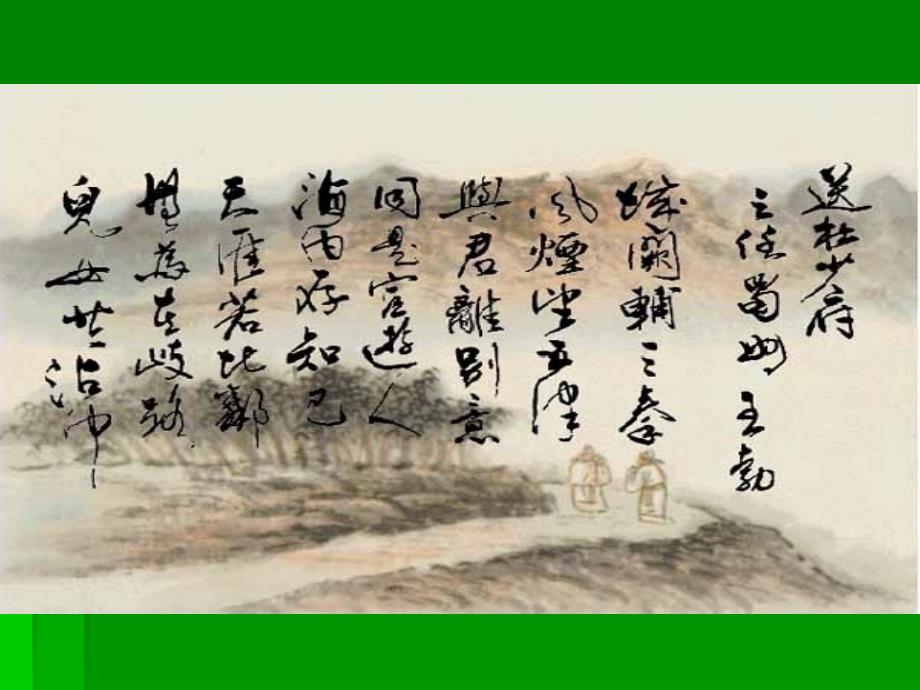 送杜少府
之任蜀州王勃
城闕輔三秦
風煙望五津
與君離別意
同是宦遊人
海内存知己
天涯若比鄰
無為在歧路
兒女共沾巾